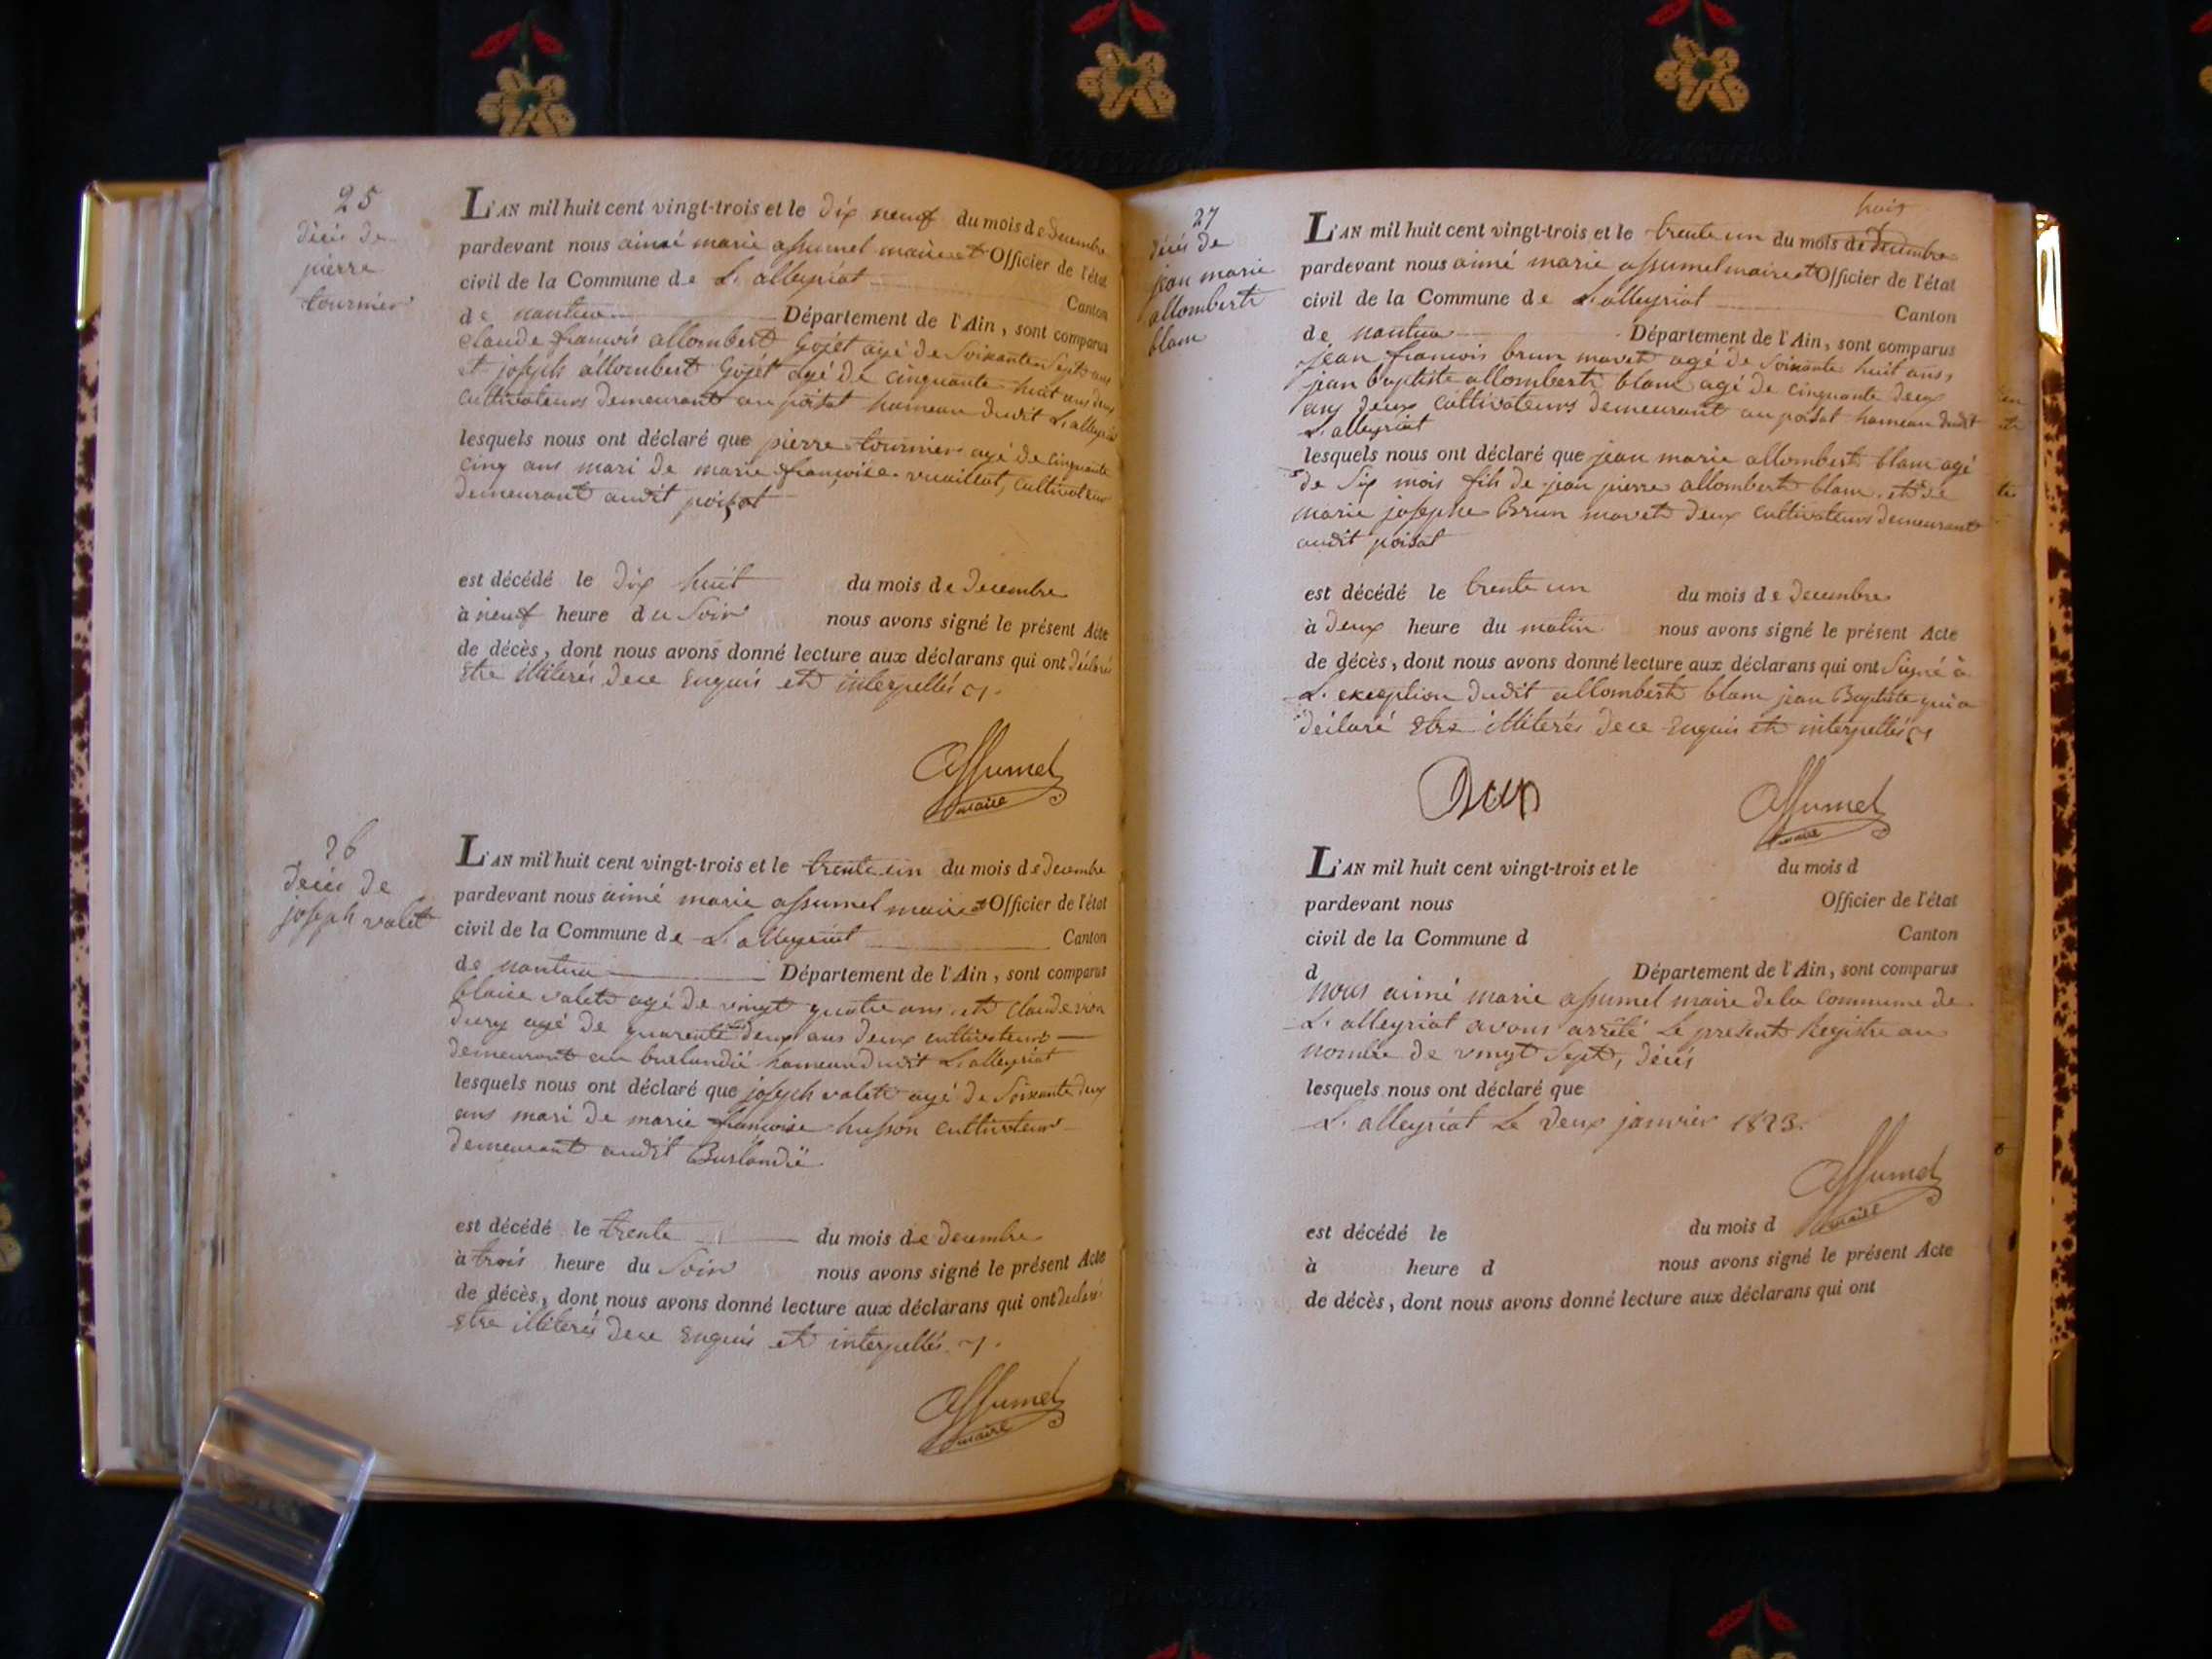 25
décés de
pierre
tournier
L'AN mil huit cent vingt-trois et le dix neuf du mois de decembre
pardevant nous aimé marie assumel maire et Officier de l'état
civil de la Commune de L'alleyriat Canton
de nantua Département de l'Ain, sont comparus
claude francois allombert gojet agé de soixante sept ans
et joseph allombert gojet agé de cinquante huit ans deux
cultivateurs demeurant au poisat hameau dudit L'alleyriat
lesquels nous ont déclaré que pierre tournier agé de cinquante
cinq ans mari de marie francoise vuaillat, cultivateur
demeurant audit poisat
est décédé le dix huit du mois de decembre
à neuf heure du soir nous avons signé le présent Acte
de décès, dont nous avons donné lecture aux déclarans qui ont déclaré
etre illiterés de ce enquis et interpellés
Assumel
maire
26
decés de
joseph valet
L'AN mil huit cent vingt-trois et le trente un du mois de decembre
pardevant nous aimé marie assumel maire et Officier de l'état
civil de la Commune de L'alleyriat Canton
de nantua Département de l'Ain, sont comparus
blaise valet agé de vingt quatre ans et claude
agé de quarente deux ans deux cultivateurs
demeurant au burlandié hameau dudit L'alleyriat
lesquels nous ont déclaré que joseph valet agé de soixante deux
ans mari de marie francoise husson cultivateur
demeurant audit Burlandié
est décédé le trente du mois de decembre
à trois heure du soir nous avons signé le présent Acte
de décès, dont nous avons donné lecture aux déclarans qui ont declaré
etre illiterés de ce enquis et interpellés
Assumel
maire
27
décés de
jean marie
allombert
blanc
L'AN mil huit cent vingt-trois et le trente un du mois de decembre
pardevant nous aimé marie assumel maire et Officier de l'état
civil de la Commune de L'alleyriat Canton
de nantua Département de l'Ain, sont comparus
jean francois brun mavet agé de soixante huit ans,
jean baptiste allombert blanc agé de cinquante deux
ans deux cultivateurs demeurant au poisat hameau dudit
L'alleyriat
lesquels nous ont déclaré que jean marie allombert blanc agé
de six mois fils de jean pierre allombert blanc et de
marie josephe Brun mavet deux cultivateurs demeurant
audit poisat
est décédé le trente un du mois de decembre
à deux heure du matin nous avons signé le présent Acte
de décès, dont nous avons donné lecture aux déclarans qui ont signé à
L'exception dudit allombert blanc jean Baptiste qui a
déclaré etre illiterés de ce enquis et interpellés
Assumel
maire
L'AN mil huit cent vingt-trois et le du mois d
pardevant nous Officier de l'état
civil de la Commune d Canton
d Département de l'Ain, sont comparus
nous aimé marie assumel maire de la commune de
L'alleyriat avons arrêté le present Registre au
nombre de vingt sept, décés
lesquels nous ont déclaré que
L'alleyriat Le deux janvier 1823.
Assumel
maire
est décédé le du mois d
à heure d nous avons signé le présent Acte
de décès, dont nous avons donné lecture aux déclarans qui ont